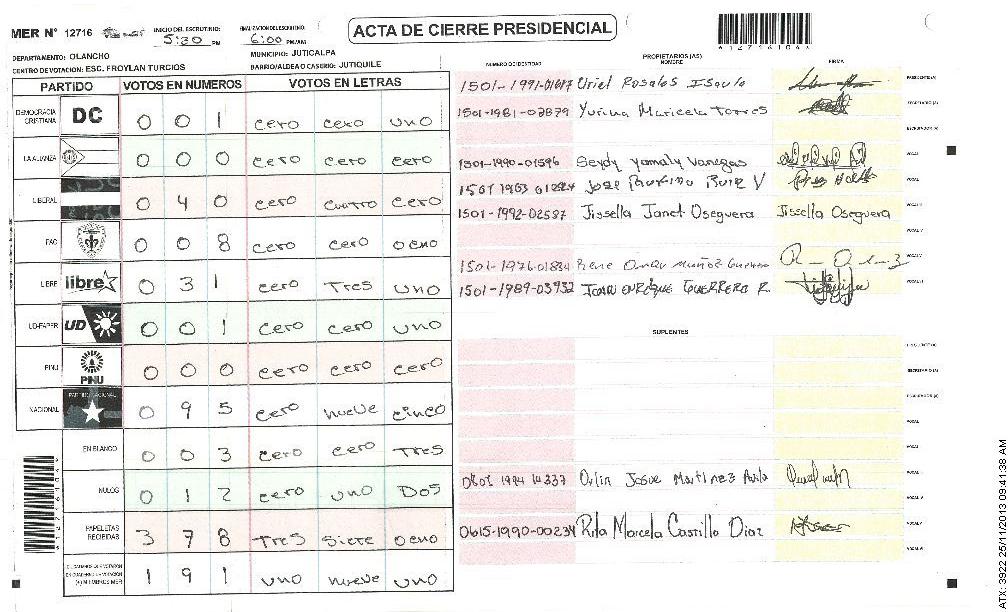 MER N° 12716
INICIO DEL ESCRUTINIO:
5:30 PM
FINALIZACION DEL ESCRUTINIO:
6:00 PM/AM
ACTA DE CIERRE PRESIDENCIAL
DEPARTAMENTO: OLANCHO
MUNICIPIO: JUTICALPA
CENTRO DE VOTACION: ESC. FROYLAN TURCIOS
BARRIO/ALDEA O CASERIO: JUTIQUILE
PARTIDO VOTOS EN NUMEROS VOTOS EN LETRAS
DEMOCRACIA CRISTIANA DC 0 0 1 cero cero uno
LA ALIANZA 0 0 0 cero cero cero
LIBERAL 0 4 0 cero cuatro cero
PAC 0 0 8 cero cero ocho
LIBRE libre 0 3 1 cero Tres uno
UD-FAPER UD 0 0 1 cero cero uno
PINU PINU 0 0 0 cero cero cero
NACIONAL PARTIDO NACIONAL 0 9 5 cero nueve cinco
EN BLANCO 0 0 3 cero cero Tres
NULOS 0 1 2 cero uno Dos
PAPELETAS RECIBIDAS 3 7 8 Tres siete ocho
1 9 1 uno nueve uno
NUMERO DE IDENTIDAD
PROPIETARIOS (AS)
NOMBRE
FIRMA
Uriel Rosales PRESIDENTE (A)
1501-1981-03879 Maricela Torres SECRETARIO (A)
ESCRUTADOR (A)
1501-1990-01596 Seydy yamaly Vanegas VOCAL
Jose Ruiz V VOCAL
1501-1992-02587 Jissella Janet Oseguera Jissella Oseguera VOCAL
1501-1976-01834 Rene Omar Muñoz
1501-1989-03932 JUAN ENRIQUE GUERRERO R.
SUPLENTES
Orlin Josue Martinez Avila
0615-1990-00234 Rita Marcela Castillo Diaz
ATX: 3922 25/11/2013 09:41:38 AM